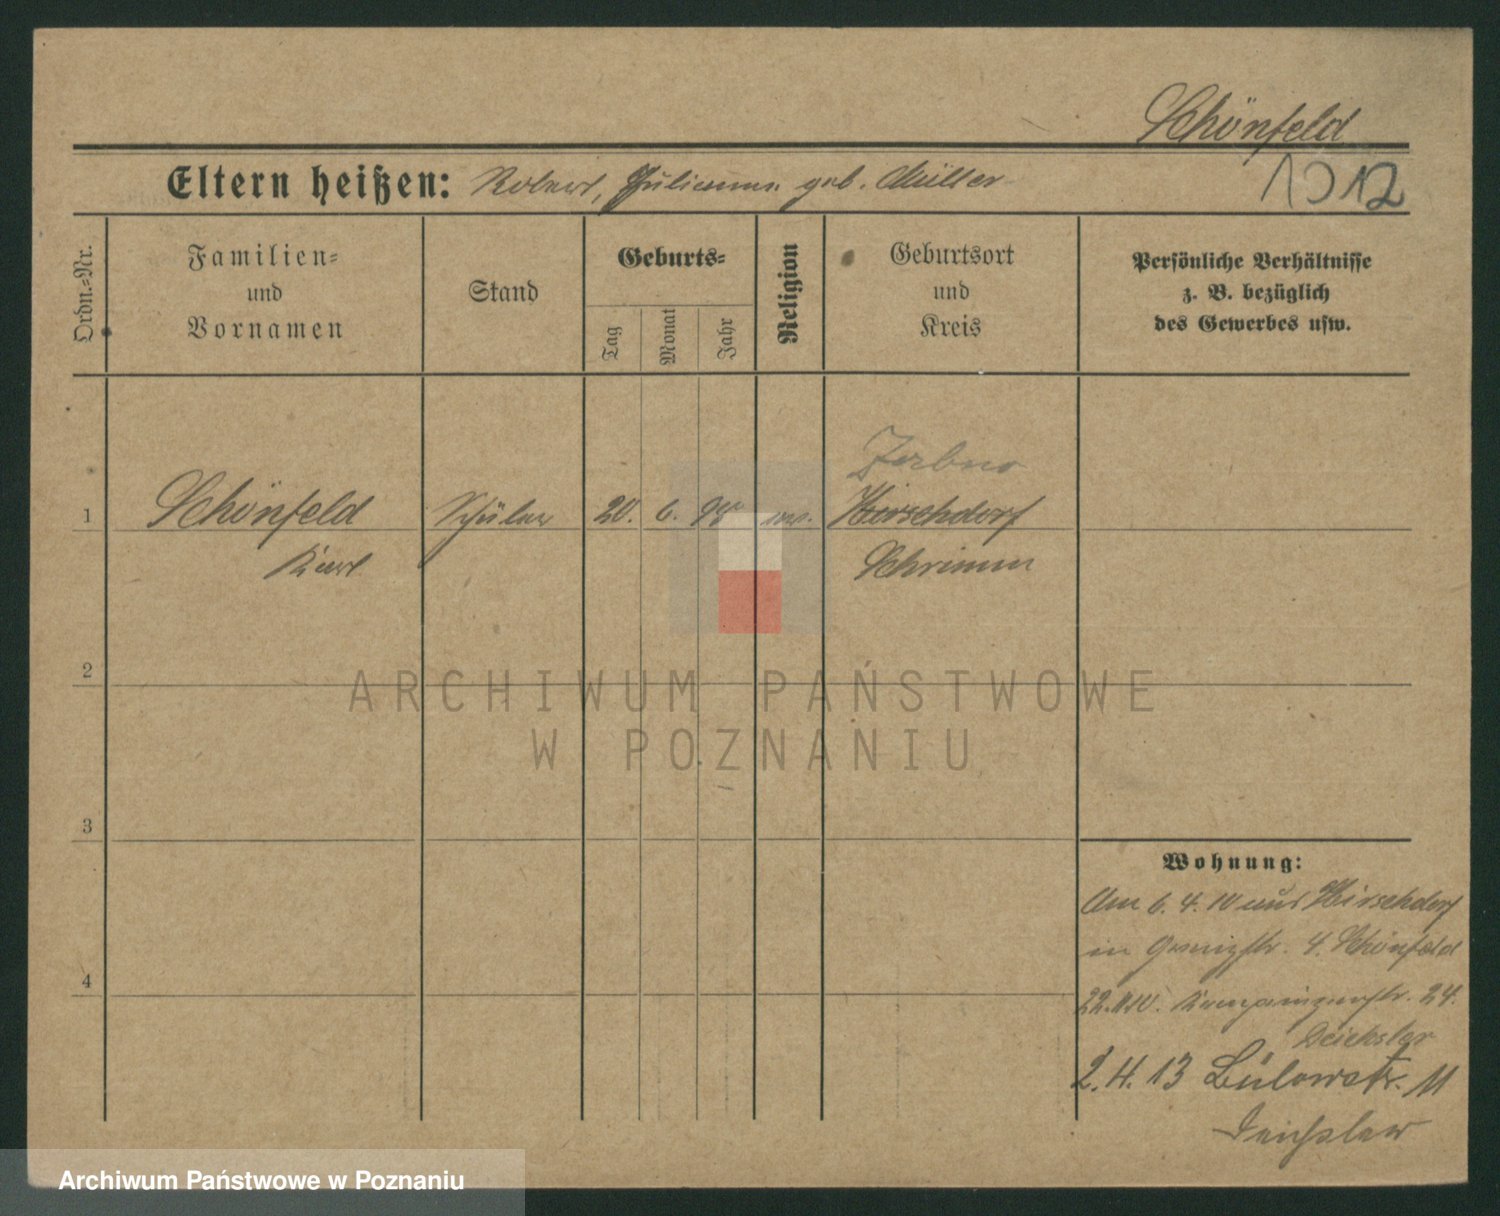 Schönfeld
Eltern heißen: Robert, Julianna geb. Müller
1912
Ordn.-Nr.
Familien-
und
Vornamen
Stand
Geburts-
Tag
Monat
Jahr
Religion
Geburtsort
und
Kreis
Persönliche Verhältnisse
z. B. bezüglich
des Gewerbes usw.
Zerbno
1 Schönfeld Schüler 20. 6. ev. Hirschdorf
Karl Schrimm
2
3
4
Wohnung:
Am 6. 4. 10 aus Hirschdorf
in Gneisenstr. 4. Schönfeld
24.
Deichsler
2. 4. 13 Bülowstr. 11
Deichsler
ARCHIWUM PAŃSTWOWE
W POZNANIU
Archiwum Państwowe w Poznaniu